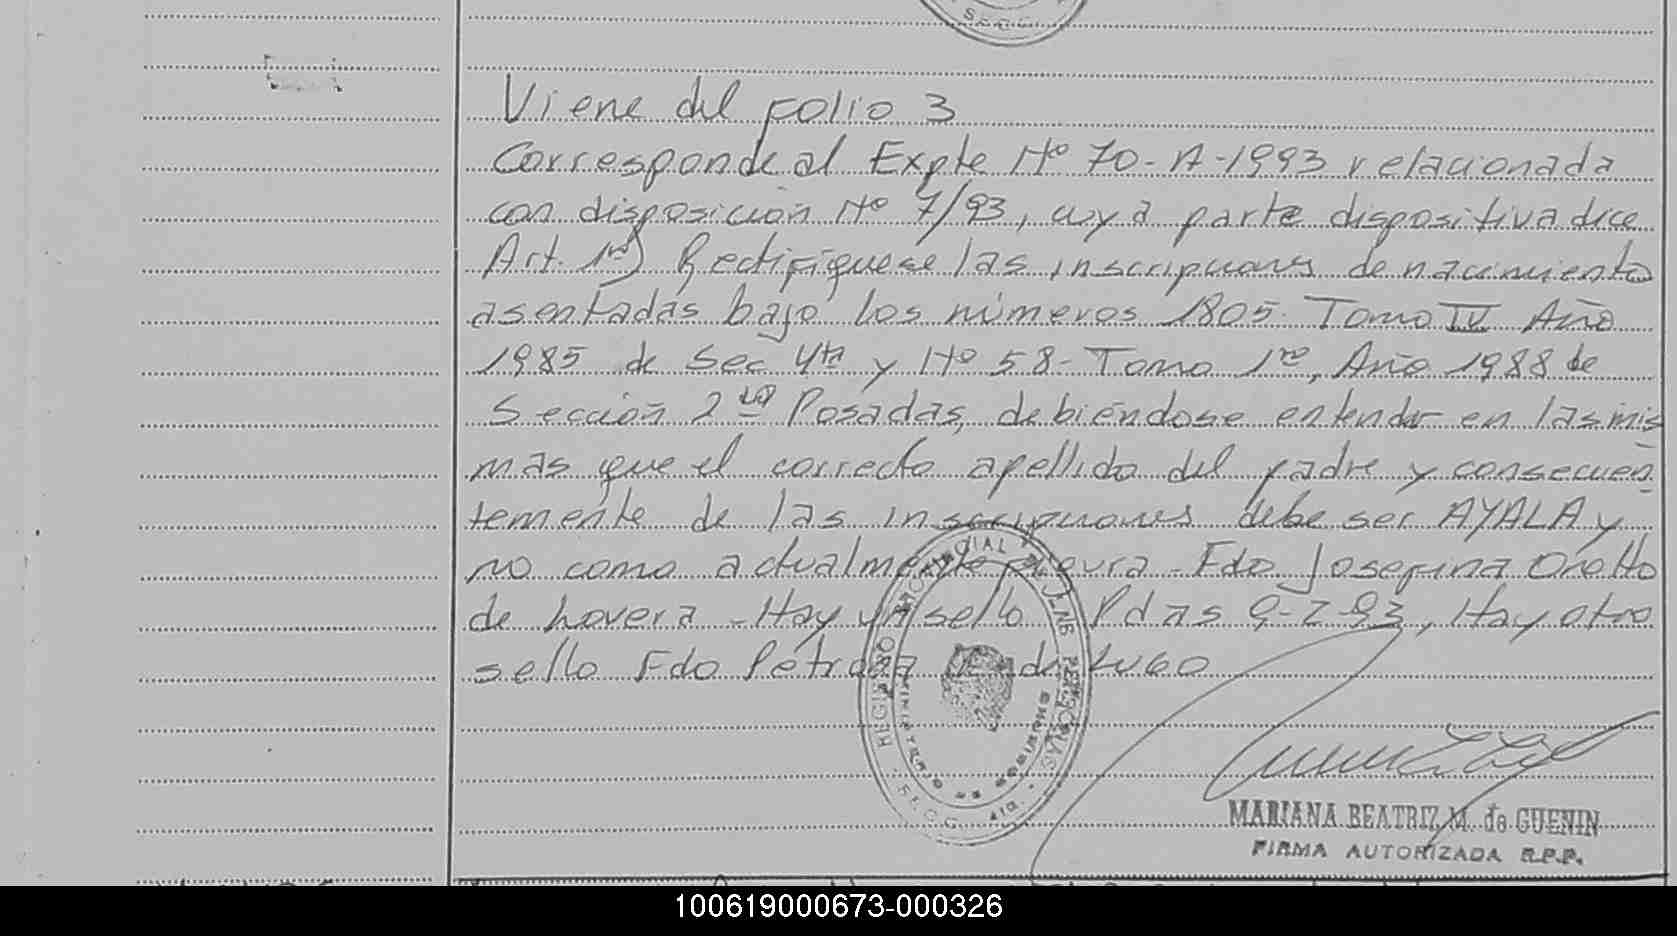 SECC
Viene del folio 3
Corresponde al Expte Nº 70-A-1993 relacionada
con disposición Nº 7/93, cuya parte dispositiva dice
Art. 1º) Rectifíquese las inscripciones de nacimiento
asentadas bajo los números 1805. Tomo IV Año
1985 de Sec 4ta y Nº 58- Tomo 1ro, Año 1988 de
Sección 2da Posadas, debiéndose entender en las mis
mas que el correcto apellido del padre y consecuen
temente de las inscripciones debe ser AYALA y
no como actualmente figura. Fdo Josefina
de Lovera - Hay un sello Pdas 9-2-93, Hay otro
sello Fdo Petrona de Lugo
REGISTRO PROVINCIAL DE LAS PERSONAS
MINISTERIO DE GOBIERNO
MARIANA BEATRIZ M. de GUENIN
FIRMA AUTORIZADA R.P.P.
100619000673-000326